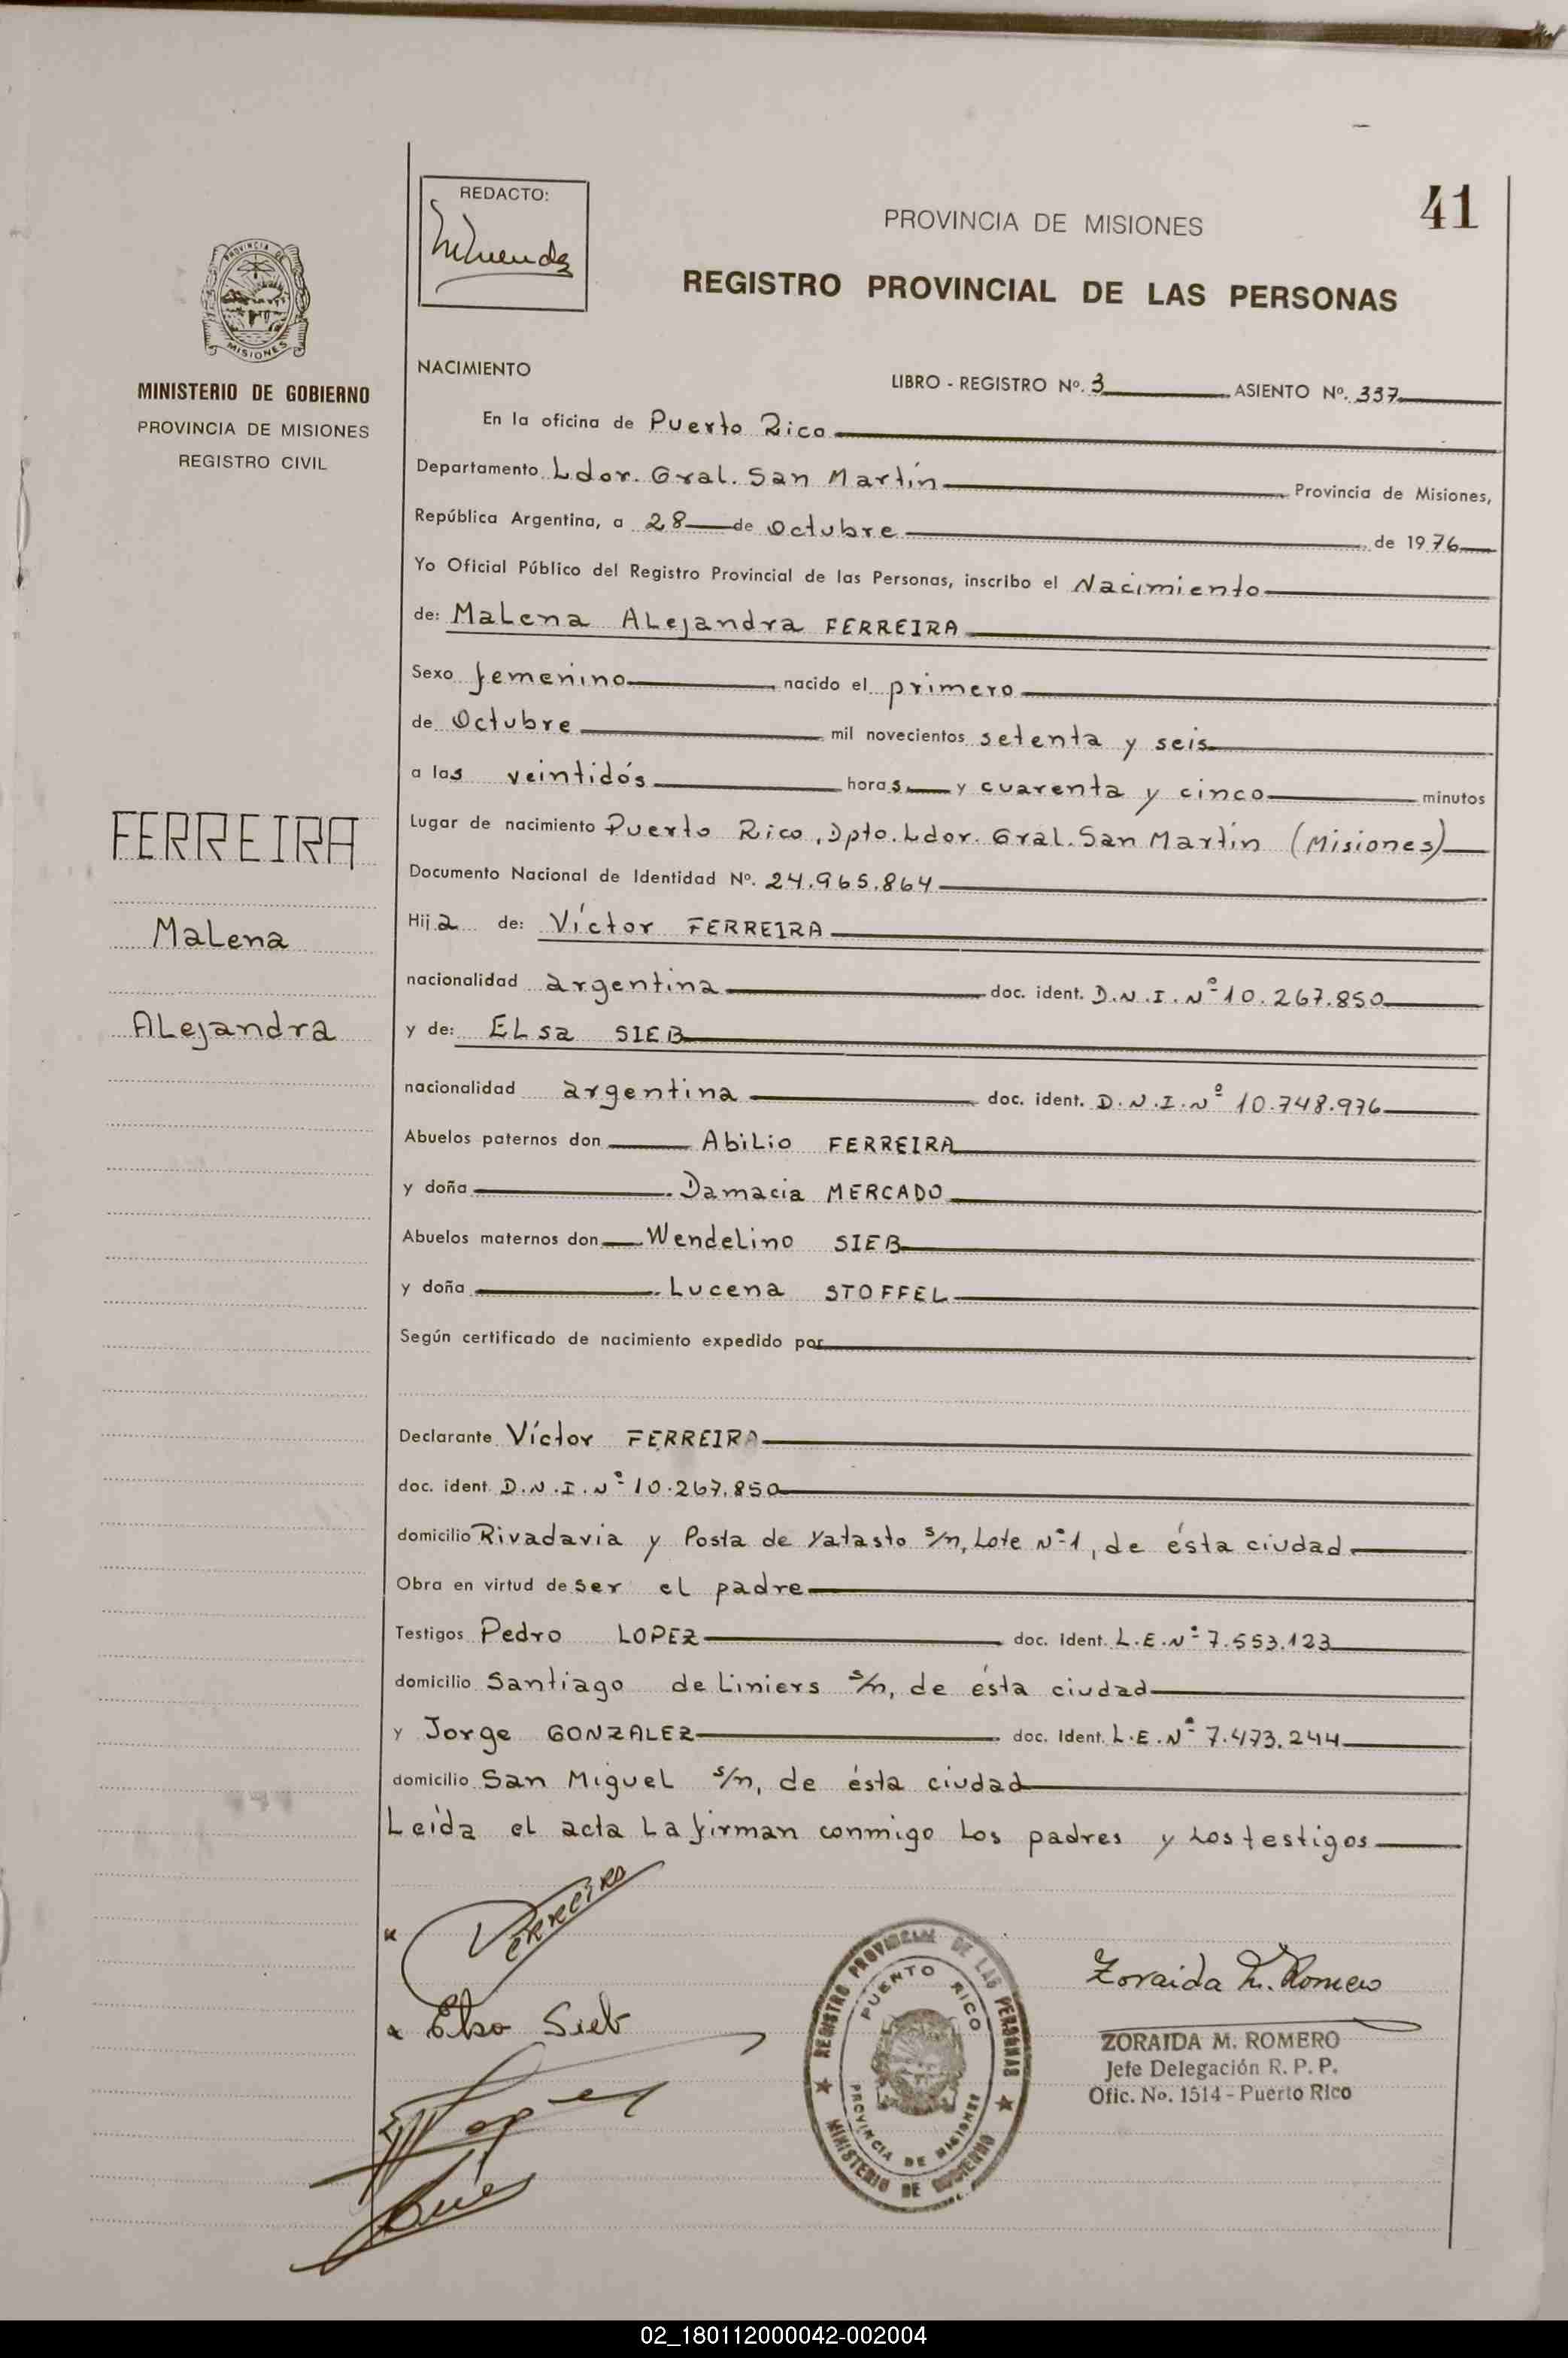 41
REDACTO:
PROVINCIA DE MISIONES
REGISTRO PROVINCIAL DE LAS PERSONAS
PROVINCIA DE
MISIONES
MINISTERIO DE GOBIERNO
PROVINCIA DE MISIONES
REGISTRO CIVIL
FERREIRA
Malena
Alejandra
NACIMIENTO
LIBRO - REGISTRO Nº. 3 ASIENTO Nº. 337
En la oficina de Puerto Rico
Departamento Ldor. Gral. San Martín Provincia de Misiones,
República Argentina, a 28 de Octubre de 1976
Yo Oficial Público del Registro Provincial de las Personas, inscribo el Nacimiento
de: Malena Alejandra FERREIRA
Sexo femenino nacido el primero
de Octubre mil novecientos setenta y seis
a las veintidós horas y cuarenta y cinco minutos
Lugar de nacimiento Puerto Rico, Dpto. Ldor. Gral. San Martín (Misiones)
Documento Nacional de Identidad Nº. 24.965.864
Hija de: Víctor FERREIRA
nacionalidad argentina doc. ident. D.N.I. Nº 10.267.850
y de: Elsa SIEB
nacionalidad argentina doc. ident. D.N.I. Nº 10.748.976
Abuelos paternos don Abilio FERREIRA
y doña Damacia MERCADO
Abuelos maternos don Wendelino SIEB
y doña Lucena STOFFEL
Según certificado de nacimiento expedido por
Declarante Víctor FERREIRA
doc. ident. D.N.I. Nº 10.267.850
domicilio Rivadavia y Posta de Yatasto s/n, Lote Nº 1, de ésta ciudad
Obra en virtud de ser el padre
Testigos Pedro LOPEZ doc. Ident. L.E. Nº 7.553.123
domicilio Santiago de Liniers s/n, de ésta ciudad
y Jorge GONZALEZ doc. Ident. L.E. Nº 7.473.244
domicilio San Miguel s/n, de ésta ciudad
Leída el acta la firman conmigo los padres y los testigos
Ferreira
Elsa Sieb
REGISTRO PROVINCIAL DE LAS PERSONAS
PUERTO RICO
PROVINCIA DE MISIONES
MINISTERIO DE GOBIERNO
Zoraida M. Romero
ZORAIDA M. ROMERO
Jefe Delegación R. P. P.
Ofic. No. 1514 - Puerto Rico
02_180112000042-002004